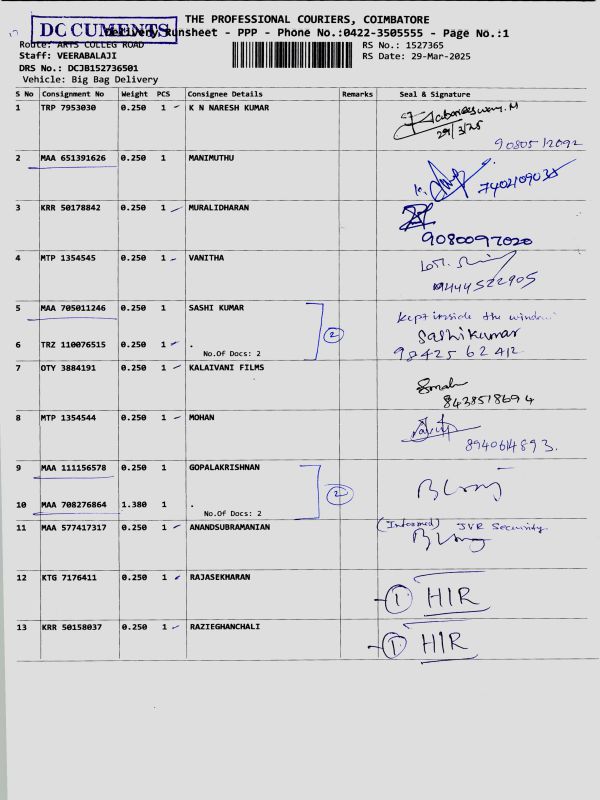 THE PROFESSIONAL COURIERS, COIMBATORE
DOCUMENTS
Delivery Runsheet - PPP - Phone No.:0422-3505555 - Page No.:1
Route: ARTS COLLEG ROAD
RS No.: 1527365
Staff: VEERABALAJI
RS Date: 29-Mar-2025
DRS No.: DCJB152736501
Vehicle: Big Bag Delivery
S No Consignment No Weight PCS Consignee Details Remarks Seal & Signature
1 TRP 7953030 0.250 1 K N NARESH KUMAR
29/3/25
2 MAA 651391626 0.250 1 MANIMUTHU
3 KRR 50178842 0.250 1 MURALIDHARAN
9080097020
4 MTP 1354545 0.250 1 VANITHA
9444522905
5 MAA 705011246 0.250 1 SASHI KUMAR
kept inside the
Sashikumar
2
6 TRZ 110076515 0.250 1 .
98425 62412
No.Of Docs: 2
7 OTY 3884191 0.250 1 KALAIVANI FILMS
8438518694
8 MTP 1354544 0.250 1 MOHAN
8940614893.
9 MAA 111156578 0.250 1 GOPALAKRISHNAN
2
10 MAA 708276864 1.380 1 .
No.Of Docs: 2
11 MAA 577417317 0.250 1 ANANDSUBRAMANIAN
(Informed) JVR Security
12 KTG 7176411 0.250 1 RAJASEKHARAN
1 HIR
13 KRR 50158037 0.250 1 RAZIEGHANCHALI
1 HIR